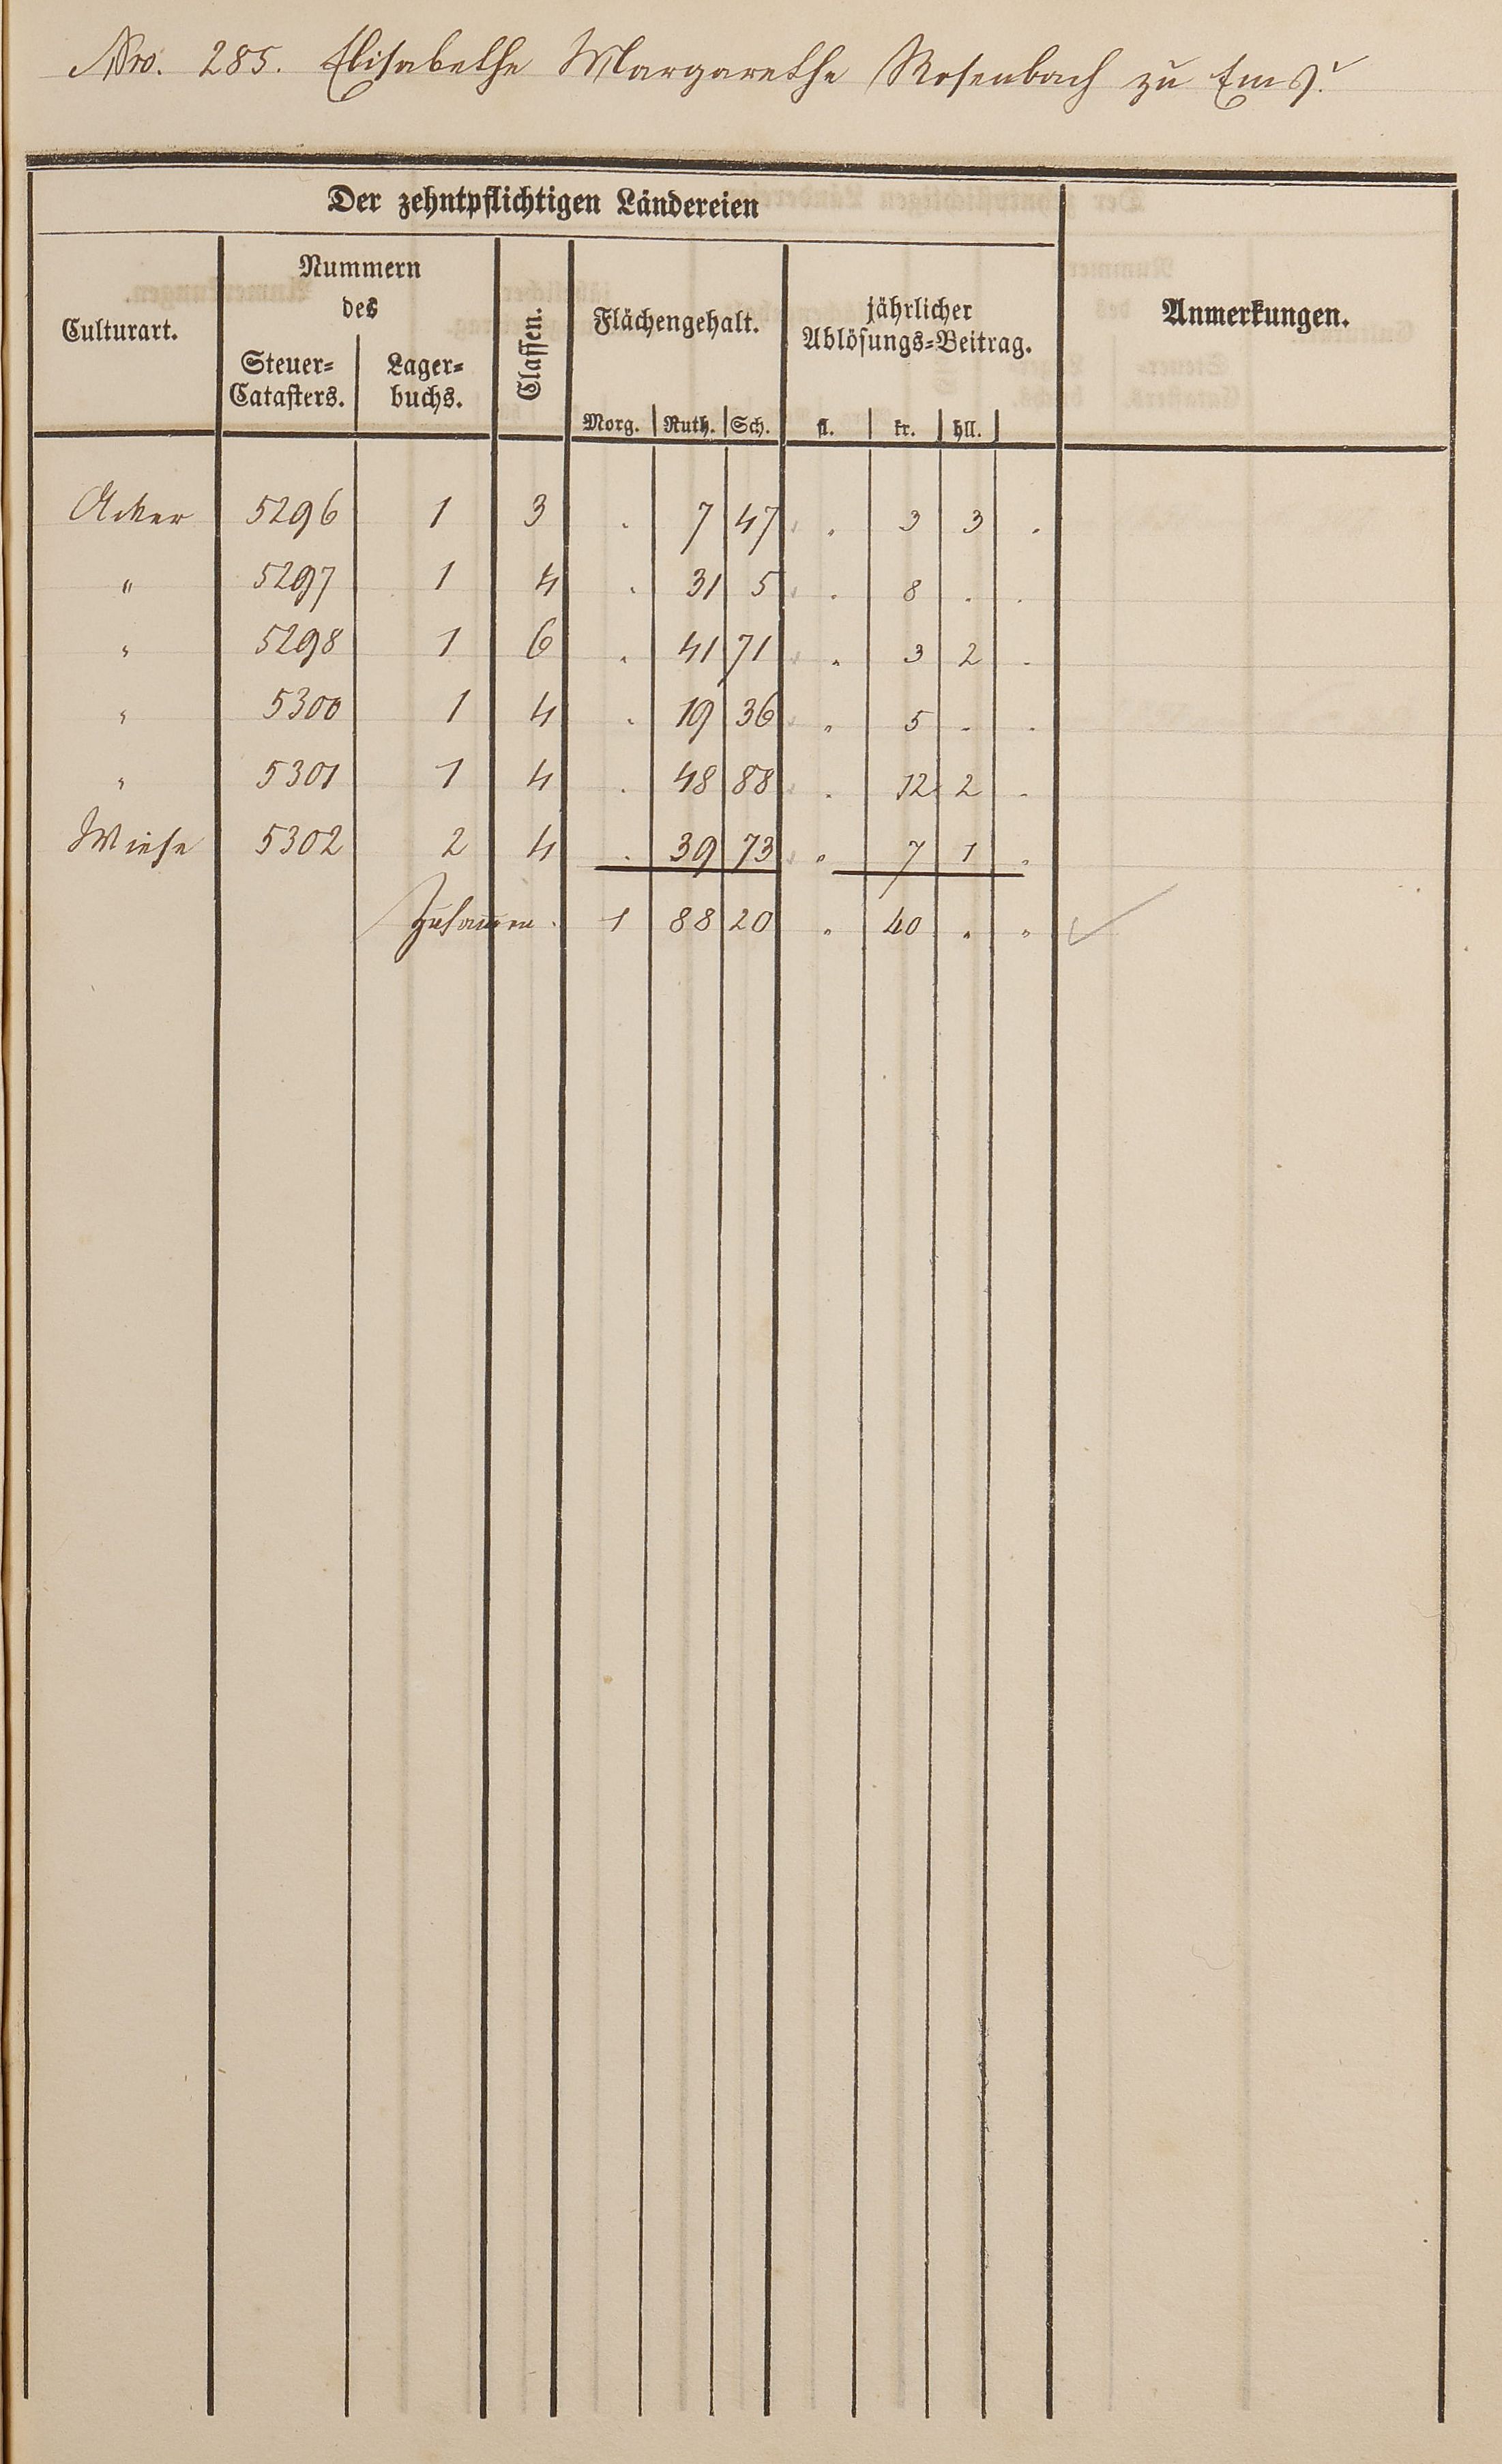 Nro. 285. Elisabethe Margarethe Rosenbach zu Ems.
Der zehntpflichtigen Ländereien
Culturart. Nummern des Steuer-Catasters. Lager-buchs. Classen. Flächengehalt. jährlicher Ablösungs-Beitrag. Anmerkungen.
Morg. Ruth. Sch. fl. kr. hll.
Acker 5296 1 3 . 7 47 . 3 3 .
" 5297 1 4 . 31 5 . 8 . .
" 5298 1 6 . 41 71 " 3 2 .
" 5300 1 4 . 19 36 " 5 . .
" 5301 1 4 . 48 88 . 12 2 .
Wiese 5302 2 4 . 39 73 " 7 1 .
Zusammen . 1 88 20 " 40 " "